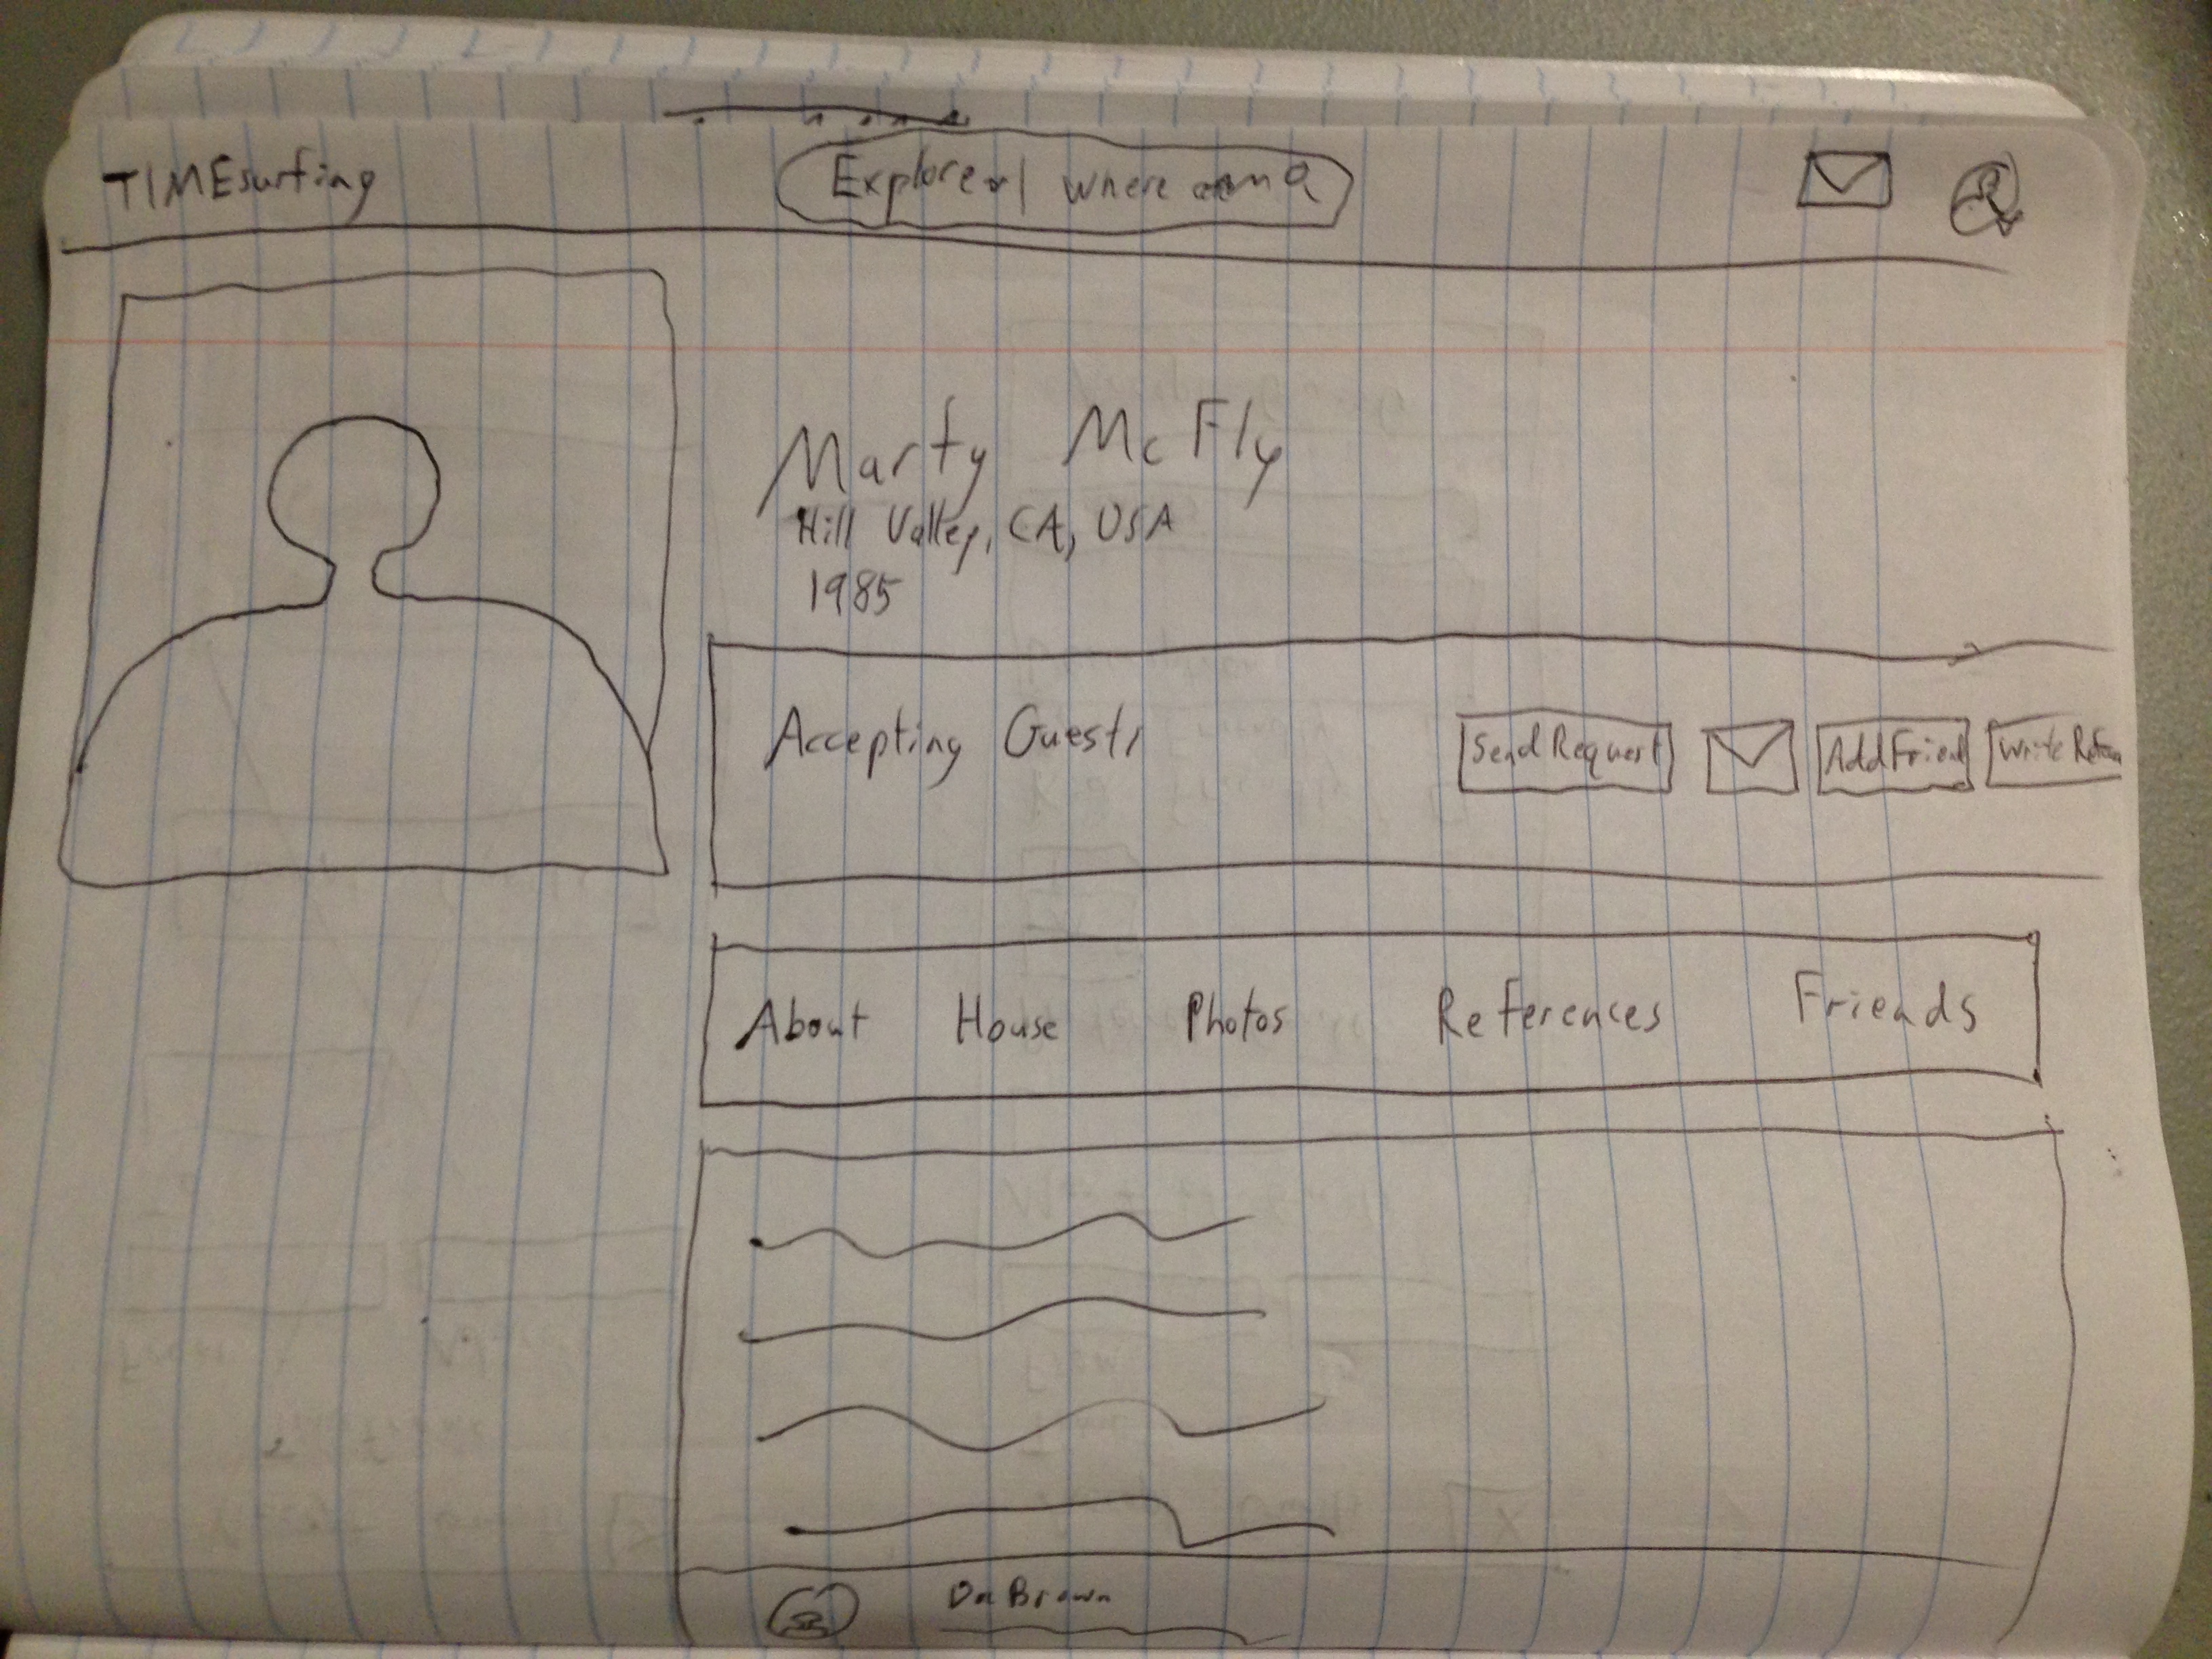 TIMEsurfing
Explore | where
Marty McFly
Hill Valley, CA, USA
1985
Accepting Guests
Send Request
Add Friend
Write
About House Photos References Friends
Brown